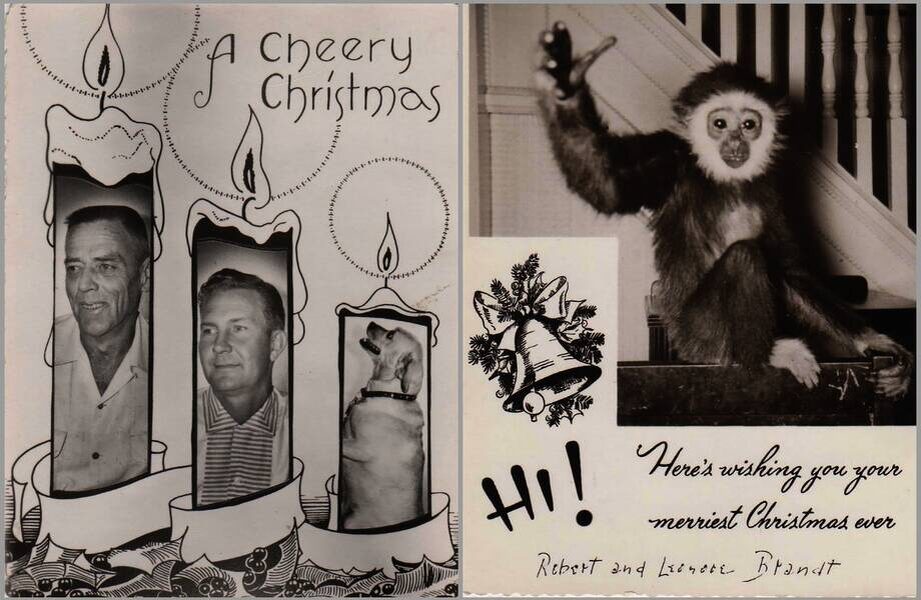 A Cheery
Christmas
Hi!
Here's wishing you your
merriest Christmas ever
Robert and Leonore Brandt